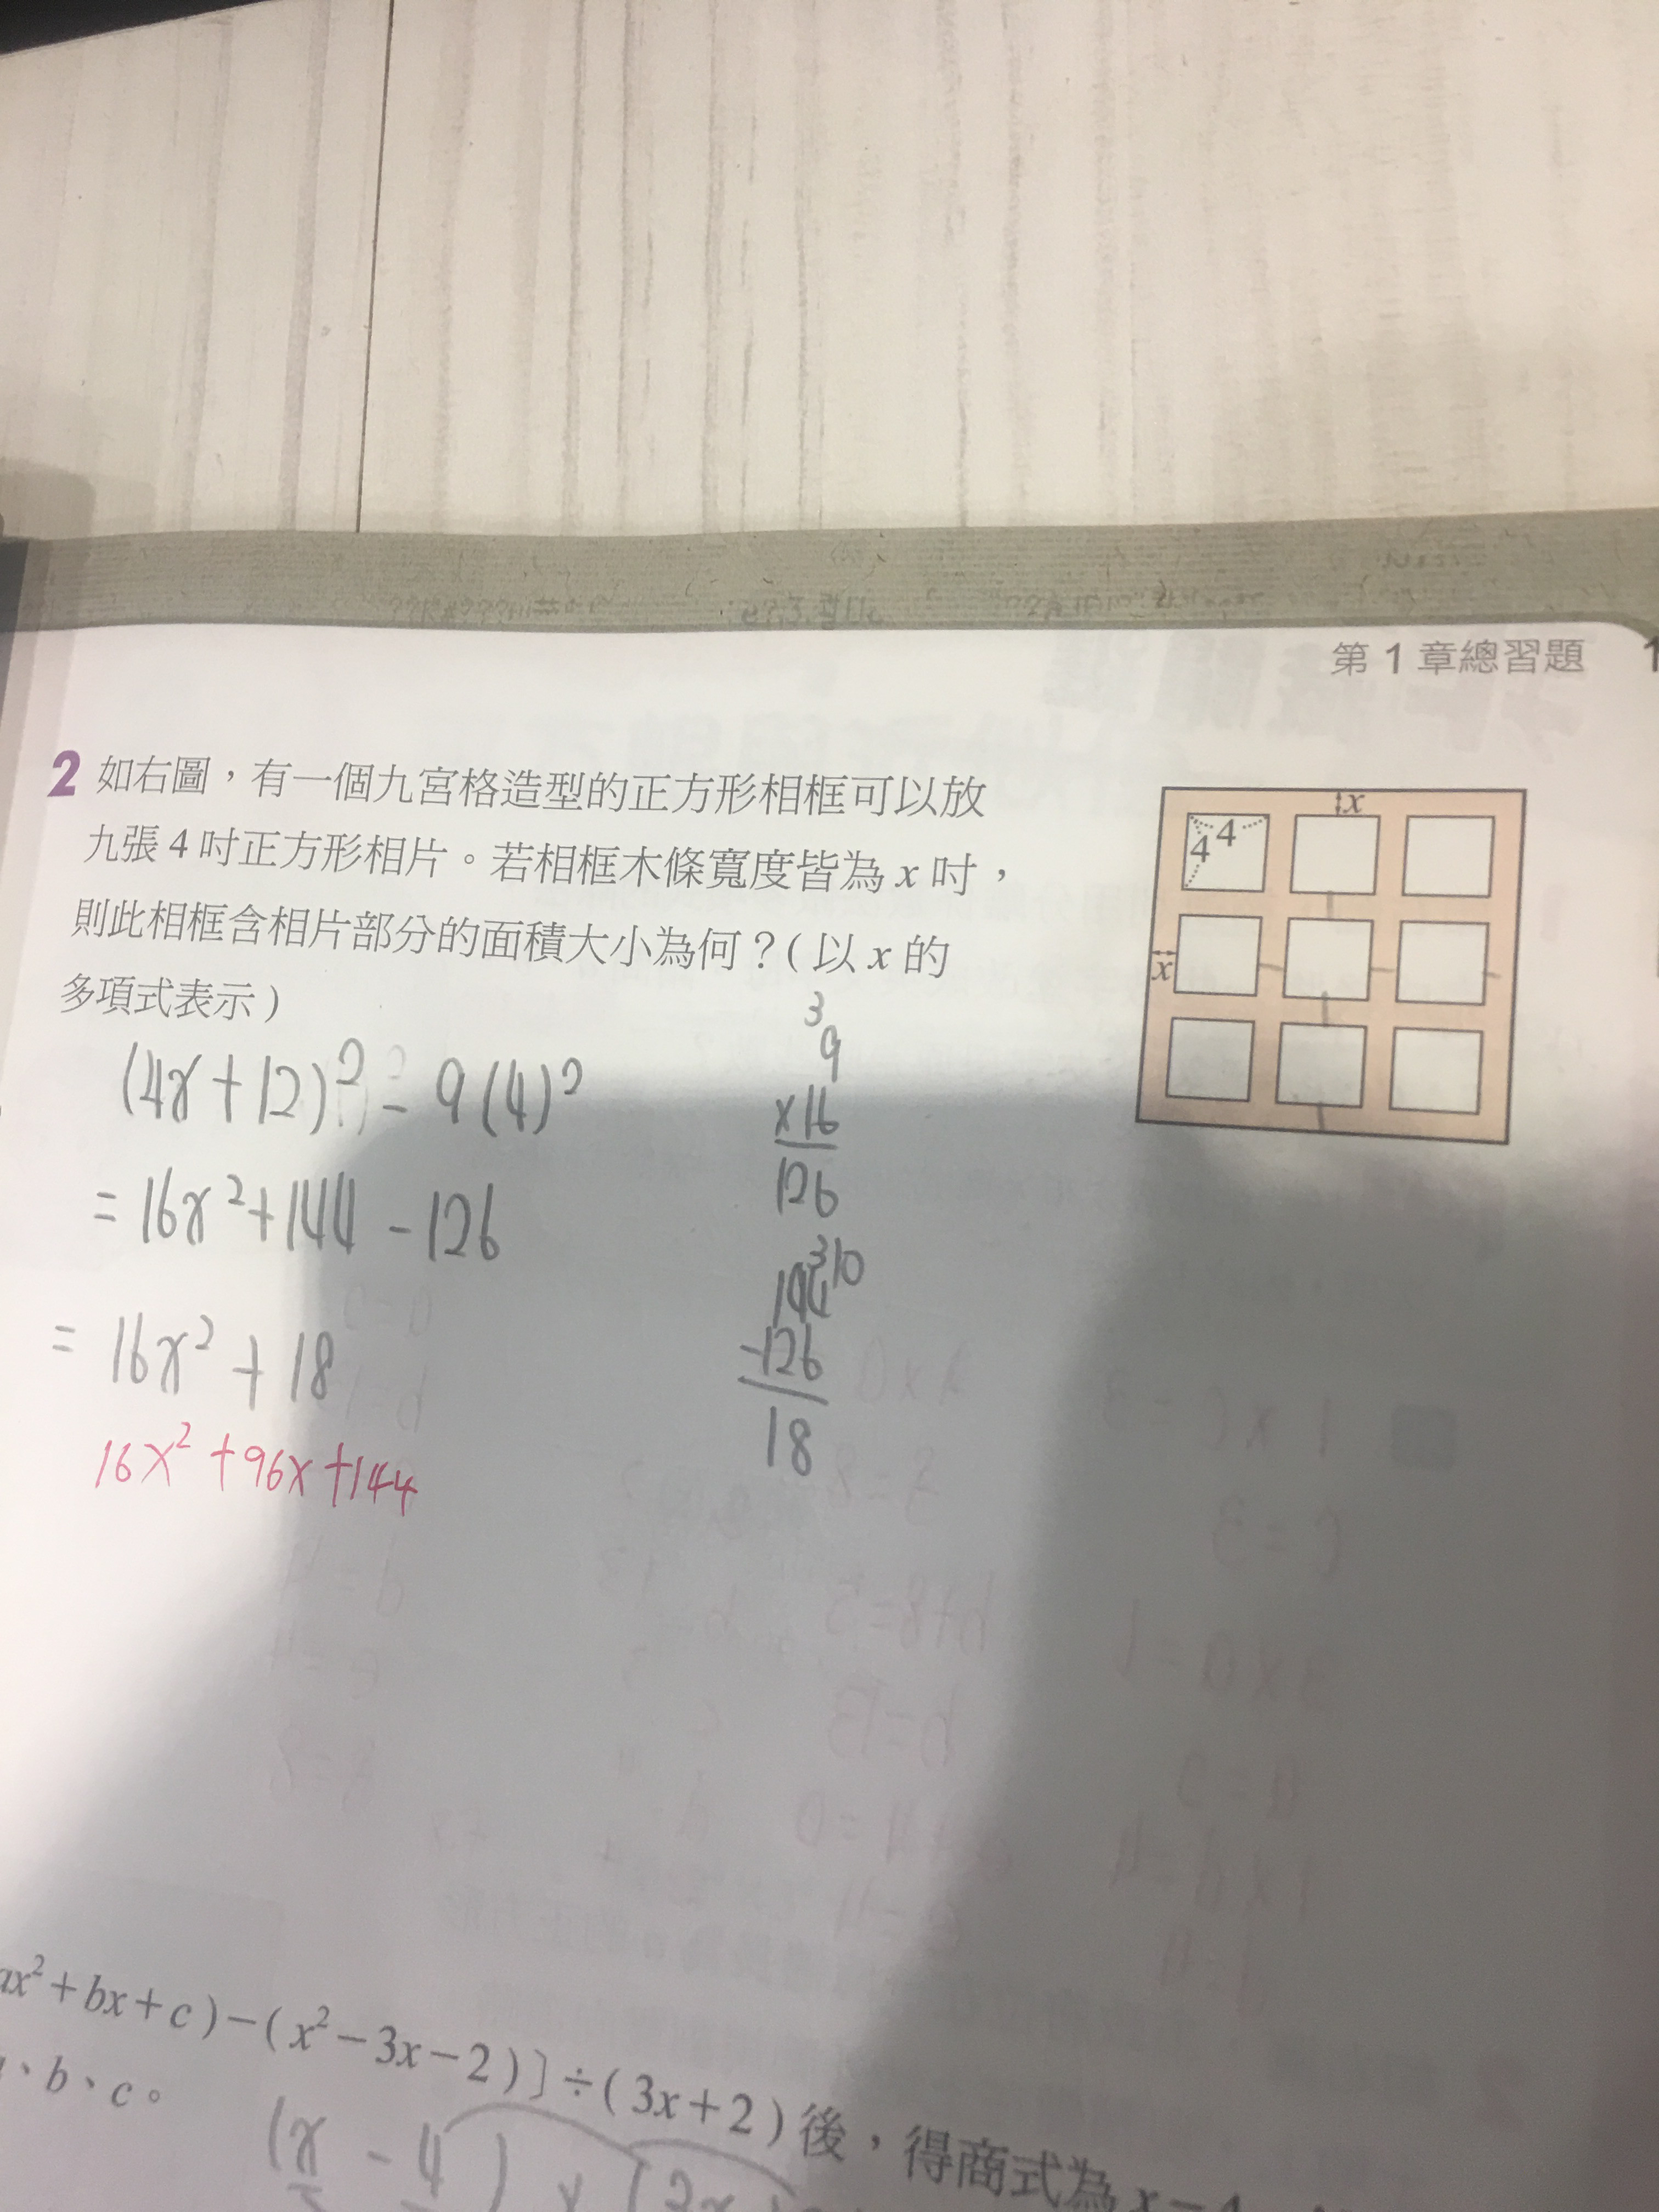 第 1 章總習題 1
2 如右圖，有一個九宮格造型的正方形相框可以放
九張 4 吋正方形相片。若相框木條寬度皆為 x 吋，
則此相框含相片部分的面積大小為何？( 以 x 的
多項式表示 )
x
4
4
x
(4x+12)² - 9(4)²
= 16x²+144 -126
= 16x² + 18
16x² +96x+144
3
9
x16
126
310
144
-126
18
ax²+bx+c)-(x²-3x-2)]÷(3x+2)後，得商式為 x-4
、b、c。
(x - 4) x